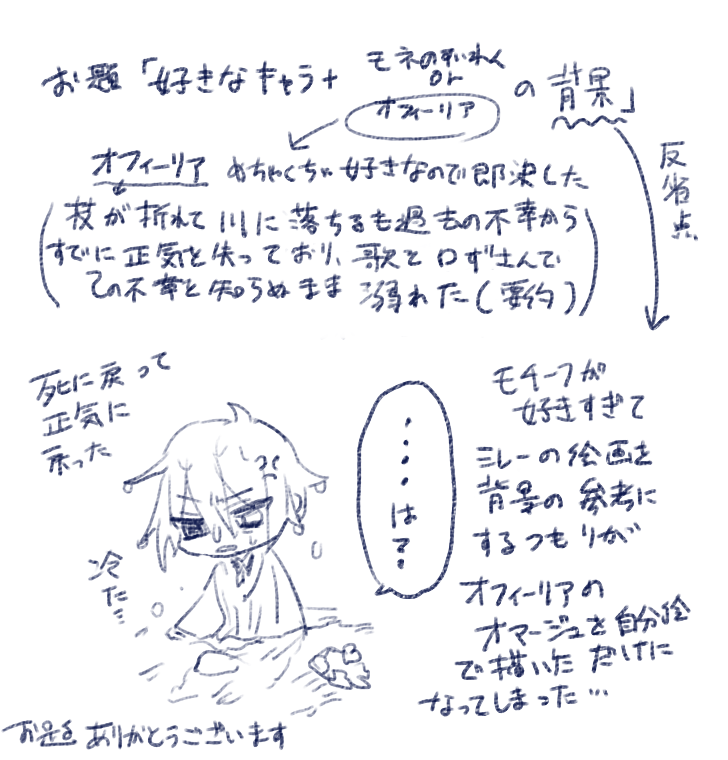 お題「好きなキャラ+
モネのすいれん
or
オフィーリア
の背景」
反省点
オフィーリア めちゃくちゃ好きなので即決した
(枝が折れて川に落ちるも過去の不幸から
すでに正気を失っており、歌を口ずさんで
その不幸を知らぬまま溺れた(要約))
死に戻って
正気に
戻った
冷た…
・・・・は?
モチーフが
好きすぎて
ミレーの絵画を
背景の参考に
するつもりが
オフィーリアの
オマージュを自分絵
で描いただけに
なってしまった…
お題ありがとうございます